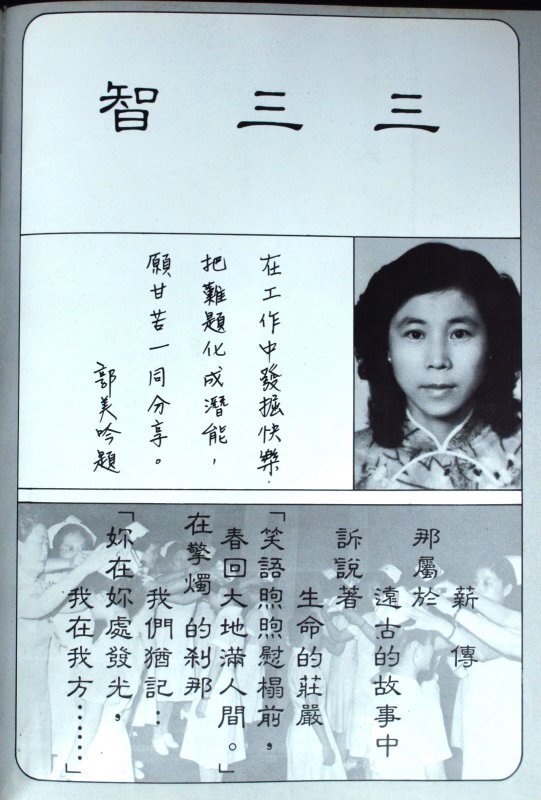 三三智
在工作中發掘快樂.
把難題化成潛能，
願甘苦一同分享。
郭美吟題
薪傳
那屬於
遠古的故事中
訴說著
生命的莊嚴
「笑語煦煦慰榻前，
春回大地滿人間。」
在擎燭的剎那
我們猶記：
「妳在妳處發光，
我在我方……」